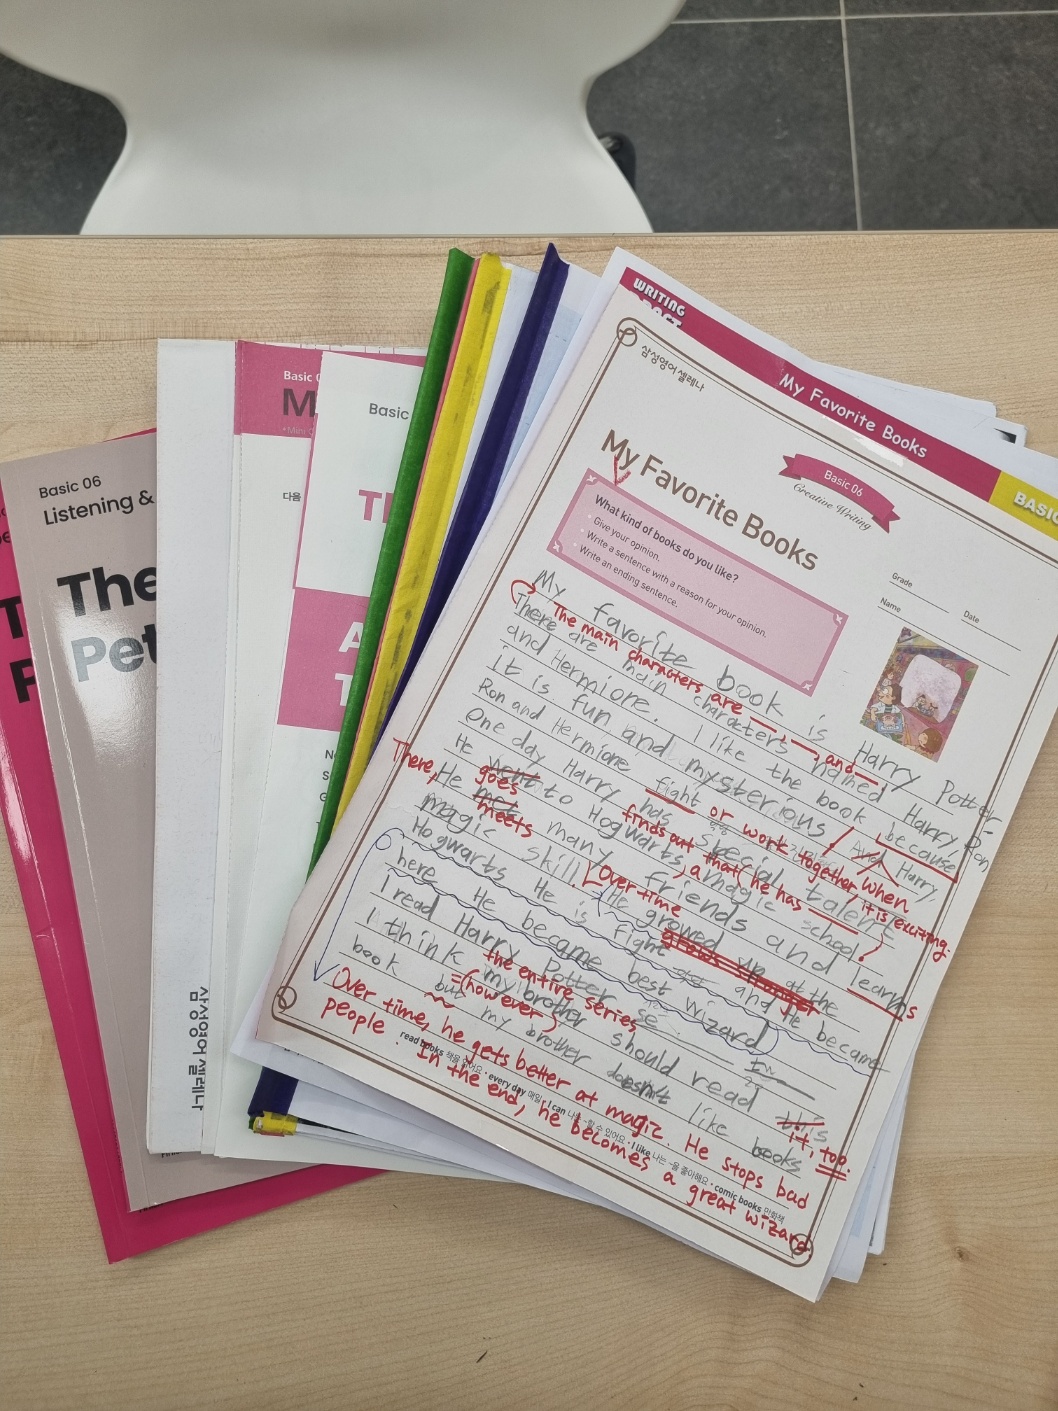 WRITING
My Favorite Books
BASIC
삼성영어 셀레나
Basic 06
Creative Writing
My Favorite Books
What kind of books do you like?
Give your opinion.
Write a sentence with a reason for your opinion.
Write an ending sentence.
Grade
Date
Name
My favorite book is Harry Potter.
The main characters are , , and
There are main characters named Harry, Ron
and Hermione. I like the book because
it is fun and mysterious! And Harry,
Ron and Hermione fight or work together, when it is exciting.
One day Harry has special talent
finds out that he has
He went to Hogwarts, a magic school.
goes
There, He met many friends and learns
meets
magic skill. Over time He growed up at the
grows stronger
Hogwarts He is fight and He became
here He became best wizard
I read Harry Potter se
the entire series
I think my brother should read this
it, too.
book but my brother doesn't like books
(however)
Over time, he gets better at magic. He stops bad
people. In the end, he becomes a great wizard.
read books 책을 읽어요 • every day 매일 • I can 나는 ~할 수 있어요 • I like 나는 ~을 좋아해요 • comic books 만화책
Basic 06
Listening &
The
Pet
Basic
M
다음
Basic
Th
A
T
삼성영어셀레나